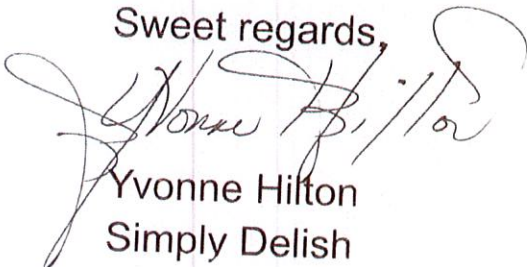 Sweet regards,
Yvonne Hilton
Yvonne Hilton
Simply Delish